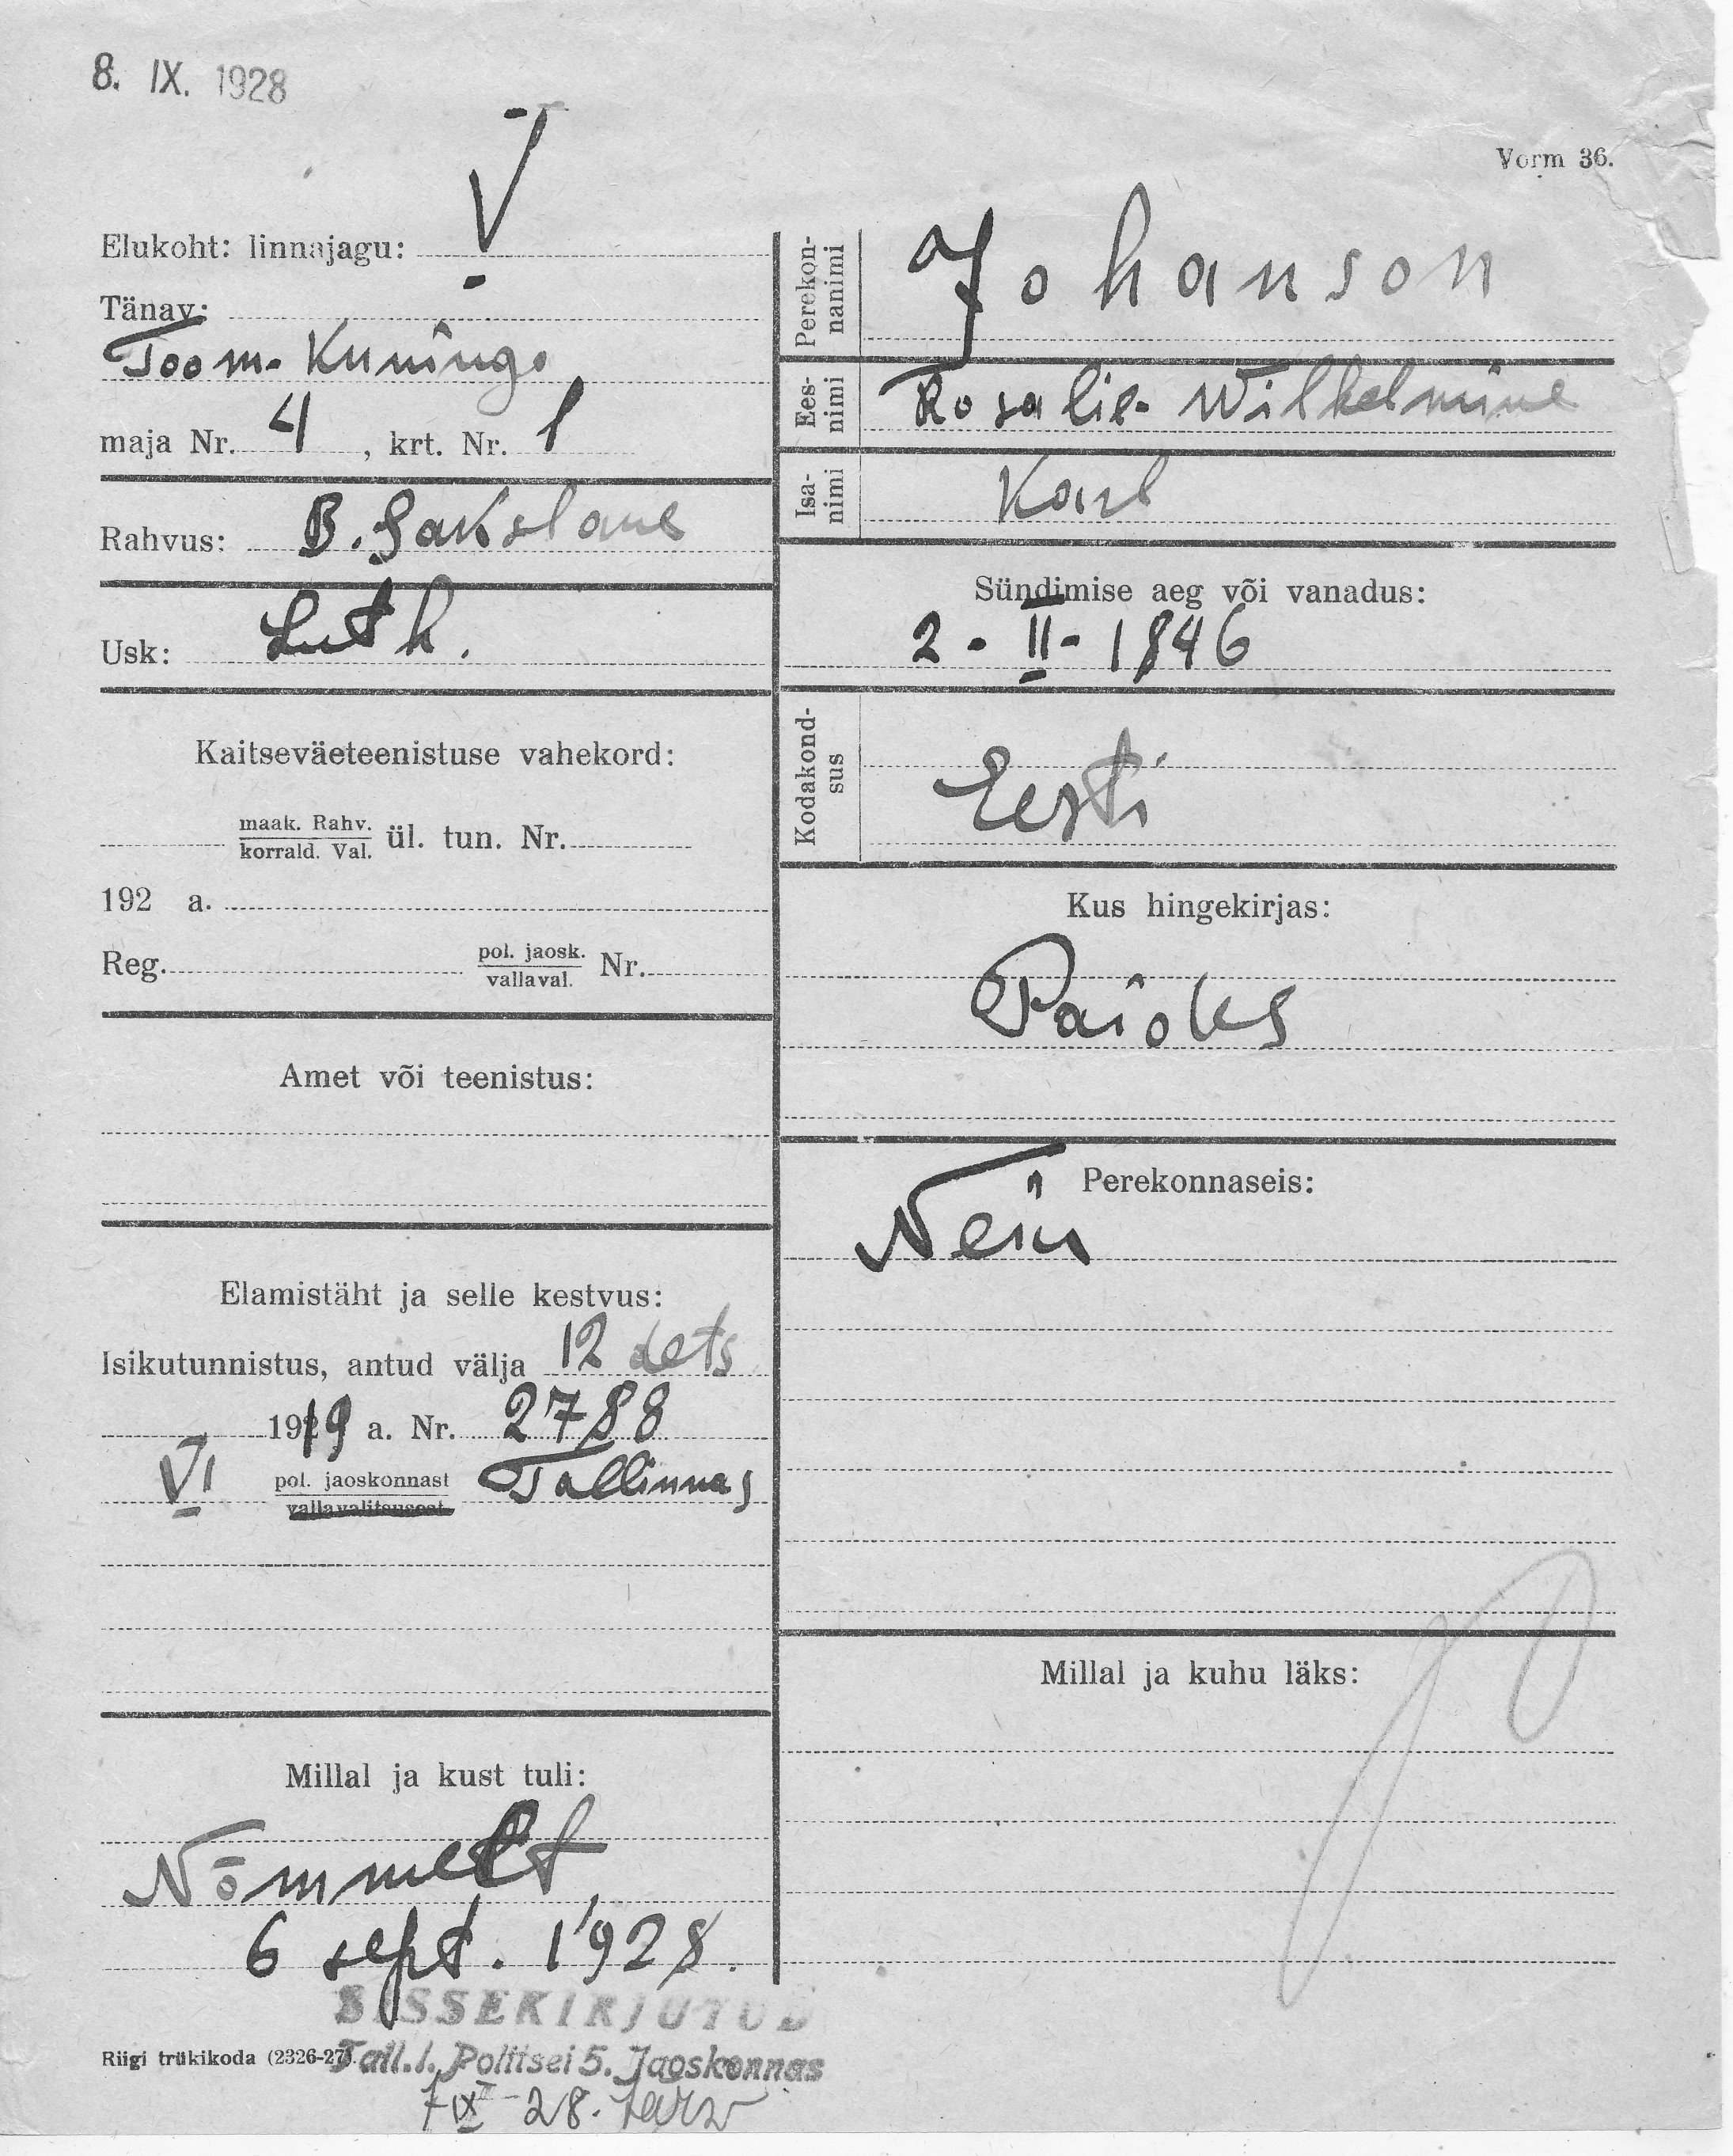 8. IX. 1928
Vorm 36.
Elukoht: linnajagu: V
Tänav:
Toom-Kuninga
maja Nr. 4, krt. Nr. 1
Rahvus: B. Sakslane
Usk: Luth.
Kaitseväeteenistuse vahekord:
maak. Rahv.
korrald. Val. ül. tun. Nr.
192 a.
Reg. pol. jaosk.
vallaval. Nr.
Amet või teenistus:
Elamistäht ja selle kestvus:
Isikutunnistus, antud välja 12 dets
1919 a. Nr. 2788
VI pol. jaoskonnast Tallinnas
vallavalitsusest
Millal ja kust tuli:
Nõmmelt
6 sept. 1928.
Perekon-
nanimi
Johanson
Ees-
nimi
Rosalie-Wilhelmine
Isa-
nimi
Karl
Sündimise aeg või vanadus:
2-II-1846
Kodakond-
sus
Eesti
Kus hingekirjas:
Perekonnaseis:
Millal ja kuhu läks:
SISSEKIRJUTUD
Riigi trükikoda (2326-27).
Tall. l. Politsei 5. Jaoskonnas
7 IX-28.